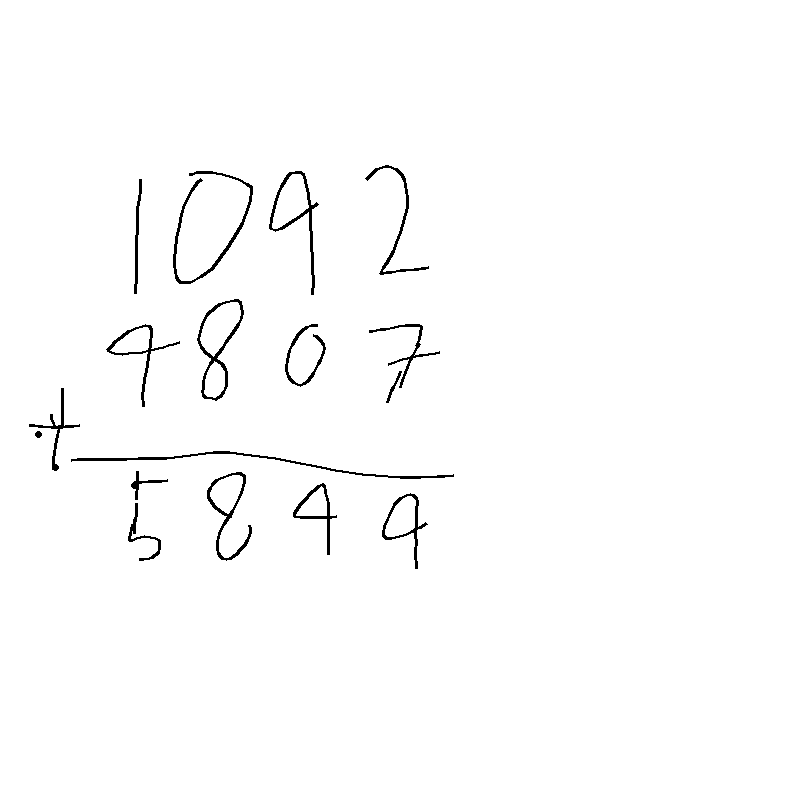 1092
4807
+
5849